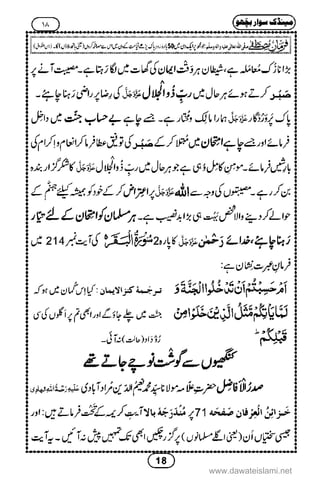 مینڈک سوار بچھو ۱۸
بڑا نازُک مُعامَلہ ہے، شیطان ہر وَقت ایمان کی گھات میں لگا رَہتا ہے۔ مصیبت آنے پر
صَبْر کرتے ہوئے ہر حال میں ربِّ ذُوالْجَلال عَزَّوَجَلَّ کی رِضا پر راضی رَہنا چاہئے۔
پاک پَرْوَردگار عَزَّوَجَلَّ ہمارا مالِک و مختار ہے۔ جسے چاہے بے حساب جنّت میں داخِل
فرمائے اور جسے چاہے امتحان میں مُبتَلا کر کے صَبْر کی توفیق عطا فرمائے اور انعام و اکرام کی
بارِشیں فرمائے۔ مومِنِ کامِل وُہی ہے جو ہر حال میں ربِّ ذُوالْجَلال عَزَّوَجَلَّ کا شکر گزار بندہ
بن کر رہے۔ مصیبتوں کی وجہ سے اللہ عَزَّوَجَلَّ پر اعتِراض کر کے خود کو ہمیشہ کیلئے جہنَّم کے
حوالے کر دینے والا شخص بَہُت ہی بڑا بدنصیب ہے۔ ہر مسلمان کو امتحان کے لئے تیّار
رَہنا چاہئے، خدائے رَحمٰن عَزَّوَجَلَّ کا پارہ 2 سُوْرَۃُ الْبَقَرَۃ کی آیت نمبر 214 میں
فرمانِ عبرت نشان ہے:
اَمْ حَسِبْتُمْ اَنْ تَدْخُلُوا الْجَنَّةَ وَ
لَمَّا يَاْتِكُمْ مَّثَلُ الَّذِيْنَ خَلَوْا مِنْ
قَبْلِكُمْ ؕ
ترجَمۂ کنزُ الایمان: کیا اِس گمان میں ہو کہ
جنّت میں چلے جاؤ گے اور ابھی تم پر اگلوں کی سی
رُوداد (حالت) نہ آئی۔
کنگھیوں سے گوشت نوچے جاتے تھے
صدرُ الْاَفاضِل حضرتِ علّامہ مولانا سیِّد محمد نعیم الدّین مُراد آبادی عَلَیْہِ رَحْمَۃُ اللہِ الْہَادِی
خَزائِنُ العِرفان صَفْحَہ 71 پر مُنْدَرَجۂ بالا آیتِ کریمہ کے تَحت فرماتے ہیں: اور
جیسی سختیاں اُن (یعنی اگلے مسلمانوں) پر گزر چکیں ابھی تک تمہیں پیش نہ آئیں۔ یہ آیت
18
www.dawateislami.net